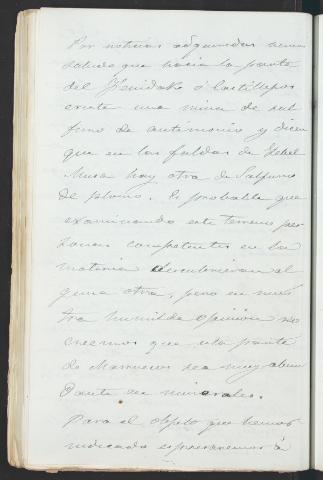 Por noticias adquiridas hemos
sabido que hacia la parte
del Fenidak ó Castillejos
existe una mina de sul
furo de antimonio y dicen
que en las faldas de Gebel
Musa hay otra de Sulfuro
de plomo. Es probable que
examinando este terreno per
sonas competentes en la
materia descubrieran al
guna otra, pero en nues
tra humilde opinion no
creemos que esta parte
de Marruecos sea muy abun
dante en minerales.
Para el objeto que hemos
indicado esperaremos á